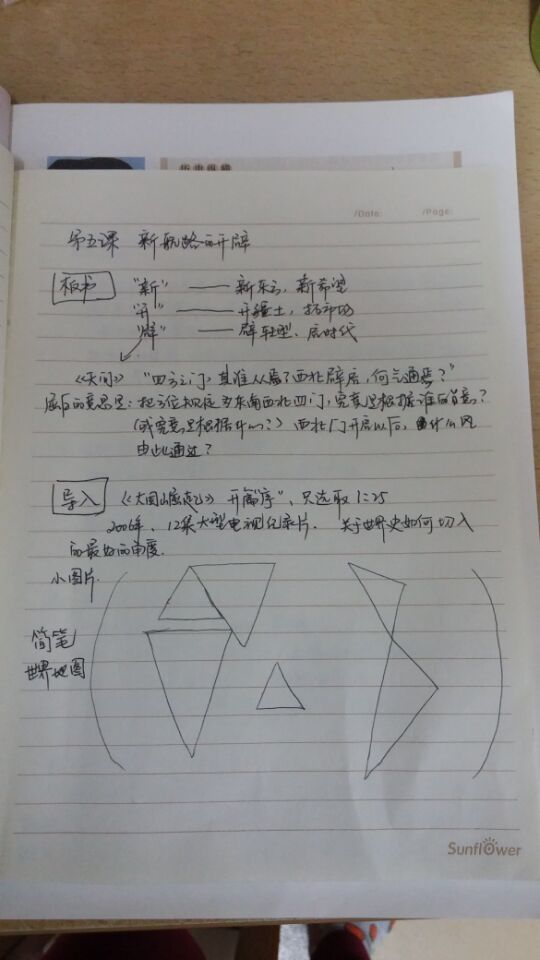 /Date: /Page:
第五课 新航路的开辟
板书 "新" —— 新东方，新希望
"开" —— 开疆土，拓市场
"辟" —— 辟转型，启时代
《天问》 "四方之门，其谁从焉？西北辟启，何气通焉？"
的意思是：把方位规定为东南西北四门，究竟是根据谁的旨意？
(或究竟是根据什么？) 西北门开启以后，什么风
由此通过？
导入 《大国崛起》开篇序"，只选取 1:25
2006年、12集大型电视纪录片. 关于世界史如何切入
的最好的角度.
小图片.
简笔
世界地图
Sunflower